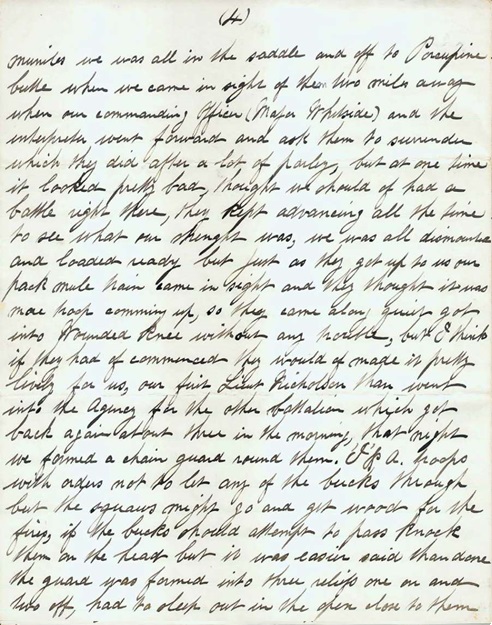 (4)
munites we was all in the saddle and off to Porcupine
butte when we came in sight of them two miles away
when our commanding Officer (Major Whitside) and the
interpreter went forward and ask them to surrender
which they did after a lot of parley, but at one time
it looked pretty bad, thought we should of had a
battle right there, they kept advancing all the time
to see what our strenght was, we was all dismounted
and loaded ready but just as they got up to us our
pack mule train came in sight and they thought it was
more troop comming up, so they came along quiet got
into Wounded Knee without any trouble, but I think
if they had of commenced they would of made it pretty
lively for us, our first Lieut Nicholson than went
into the Agency for the other battalion which got
back again about three in the morning, that night
we formed a chain guard round them. & A. troops
with orders not to let any of the bucks through
but the squaws might go and get wood for the
fires, if the bucks should attempt to pass knock
them on the head but it was easier said than done
the guard was formed into three reliefs one on and
two off, had to sleep out in the open close to them